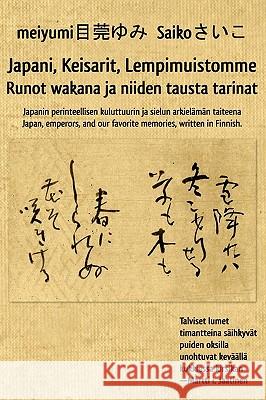 meiyumi目莞ゆみ Saikoさいこ
Japani, Keisarit, Lempimuistomme
Runot wakana ja niiden tausta tarinat
Japanin perinteellisen kuluttuurin ja sielun arkielämän taiteena
Japan, emperors, and our favorite memories, written in Finnish.
雪降れハ
冬こもりせる
草も木も
春に
しられぬ
花そ咲きける
Talviset lumet
timantteina säihkyvät
puiden oksilla
unohtuvat keväällä
kirsikan
—Martti I. Jaatinen